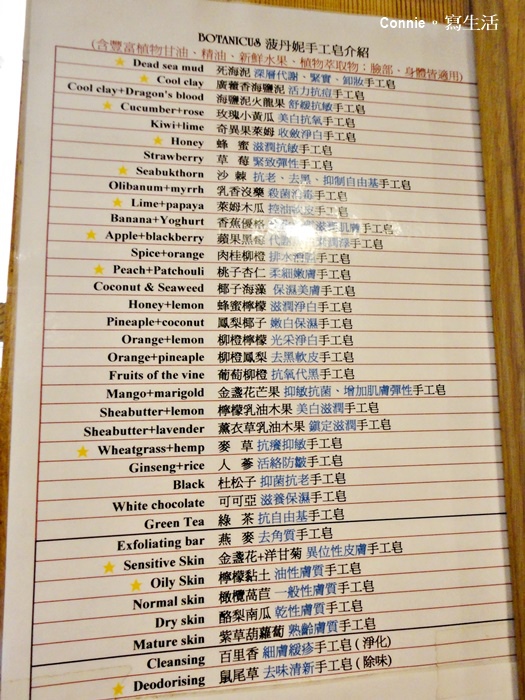 Connie。寫生活
BOTANICUS 菠丹妮手工皂介紹
(含豐富植物甘油、精油、新鮮水果、植物萃取物；臉部、身體皆適用)
Dead sea mud 死海泥 深層代謝、緊實、卸妝手工皂
Cool clay 廣藿香海鹽泥 活力抗痘手工皂
Cool clay+Dragon's blood 海鹽泥火龍果 舒緩抗敏手工皂
Cucumber+rose 玫瑰小黃瓜 美白抗氧手工皂
Kiwi+lime 奇異果萊姆 收斂淨白手工皂
Honey 蜂 蜜 滋潤抗敏手工皂
Strawberry 草 莓 緊致彈性手工皂
Seabukthorn 沙 棘 抗老、去黑、抑制自由基手工皂
Olibanum+myrrh 乳香沒藥 殺菌消毒手工皂
Lime+papaya 萊姆木瓜 控油軟皮手工皂
Banana+Yoghurt 香蕉優格 肌膚手工皂
Apple+blackberry 蘋果黑莓 代謝 手工皂
Spice+orange 肉桂柳橙 排水 手工皂
Peach+Patchouli 桃子杏仁 柔細嫩膚手工皂
Coconut & Seaweed 椰子海藻 保濕美膚手工皂
Honey+lemon 蜂蜜檸檬 滋潤淨白手工皂
Pineaple+coconut 鳳梨椰子 嫩白保濕手工皂
Orange+lemon 柳橙檸檬 光采淨白手工皂
Orange+pineaple 柳橙鳳梨 去黑軟皮手工皂
Fruits of the vine 葡萄柳橙 抗氧代黑手工皂
Mango+marigold 金盞花芒果 抑敏抗菌、增加肌膚彈性手工皂
Sheabutter+lemon 檸檬乳油木果 美白滋潤手工皂
Sheabutter+lavender 薰衣草乳油木果 鎮定滋潤手工皂
Wheatgrass+hemp 麥 草 抗癢抑敏手工皂
Ginseng+rice 人 蔘 活絡防皺手工皂
Black 杜松子 抑菌抗老手工皂
White chocolate 可可亞 滋養保濕手工皂
Green Tea 綠 茶 抗自由基手工皂
Exfoliating bar 燕 麥 去角質手工皂
Sensitive Skin 金盞花+洋甘菊 異位性皮膚手工皂
Oily Skin 檸檬黏土 油性膚質手工皂
Normal skin 橄欖萵苣 一般性膚質手工皂
Dry skin 酪梨南瓜 乾性膚質手工皂
Mature skin 紫草胡蘿蔔 熟齡膚質手工皂
Cleansing 百里香 細膚緩疹手工皂 (淨化)
Deodorising 鼠尾草 去味清新手工皂 (除味)